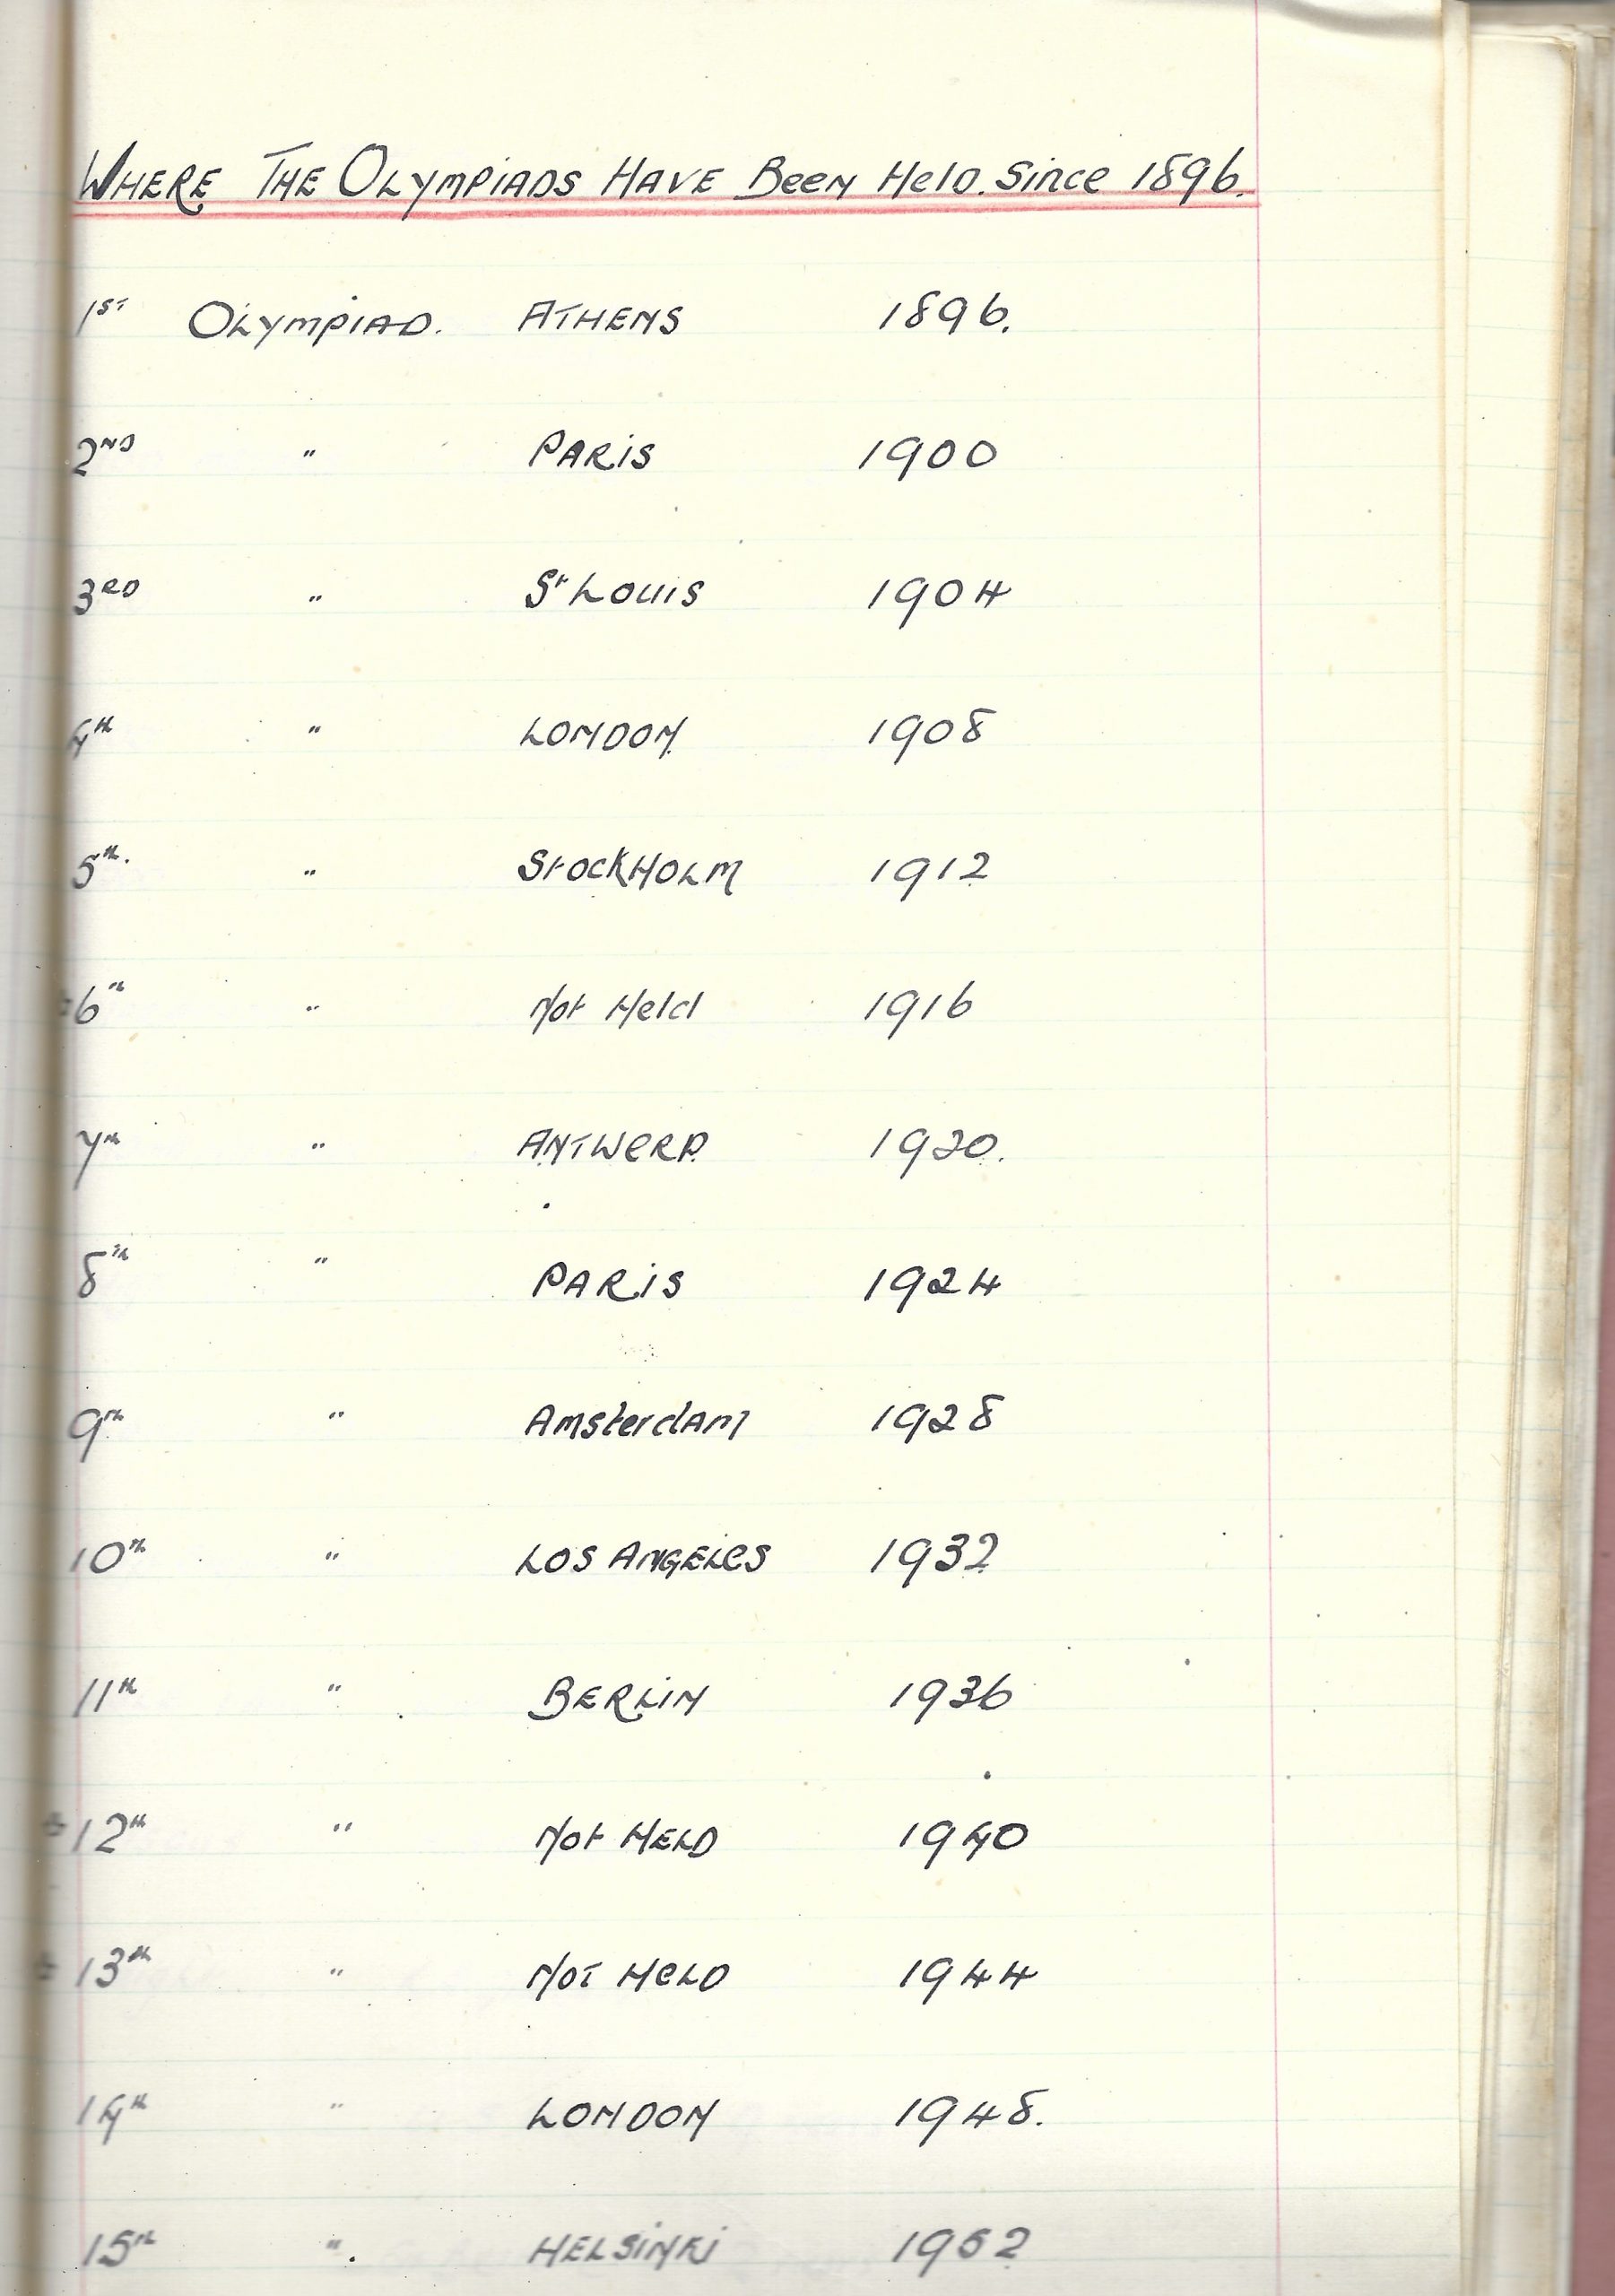 WHERE THE OLYMPIADS HAVE BEEN HELD. SINCE 1896.
1ST OLYMPIAD. ATHENS 1896.
2ND " PARIS 1900
3RD " St LOUIS 1904
4TH " LONDON 1908
5th. " STOCKHOLM 1912
6th " Not Held 1916
7TH " ANTWERP. 1920.
8TH " PARIS 1924
9TH " Amsterdam 1928
10TH " LOS ANGELES 1932
11TH " BERLIN 1936
12TH " Not HELD 1940
13TH " NOT HELD 1944
14TH " LONDON 1948.
15TH ". HELSINKI 1952